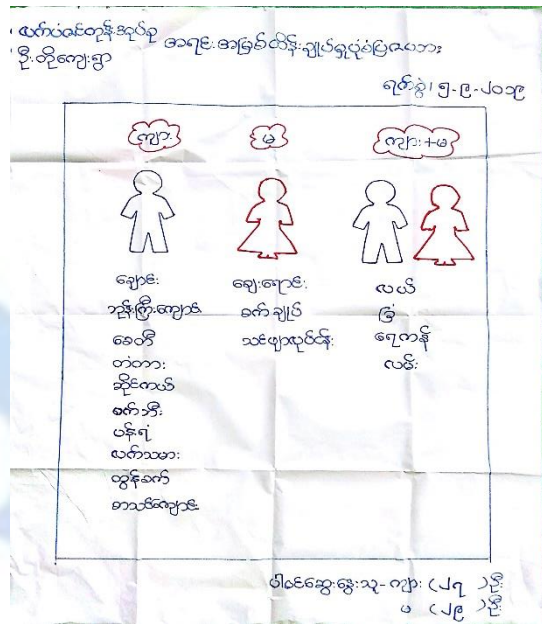 လက်ပံခင်တုန်းအုပ်စု
ဦးတိုကျေးရွာ
အရင်းအမြစ်ထိန်းချုပ်မှုပုံစံပြဇယား
ရက်စွဲ၊ ၅-၉-၂၀၁၉
ကျား
မ
ကျား+မ
ချောင်း
ဘုန်းကြီးကျောင်း
စေတီ
တံတား
ဆိုင်ကယ်
စက်ဘီး
ပန်းရံ
လက်သမား
ထွန်စက်
စာသင်ကျောင်း
ဈေးရောင်း
စက်ချုပ်
သင်ဖျာလုပ်ငန်း
လယ်
ခြံ
ရေကန်
လမ်း
ပါဝင်ဆွေးနွေးသူ - ကျား (၂၇) ဦး
မ (၂၉) ဦး